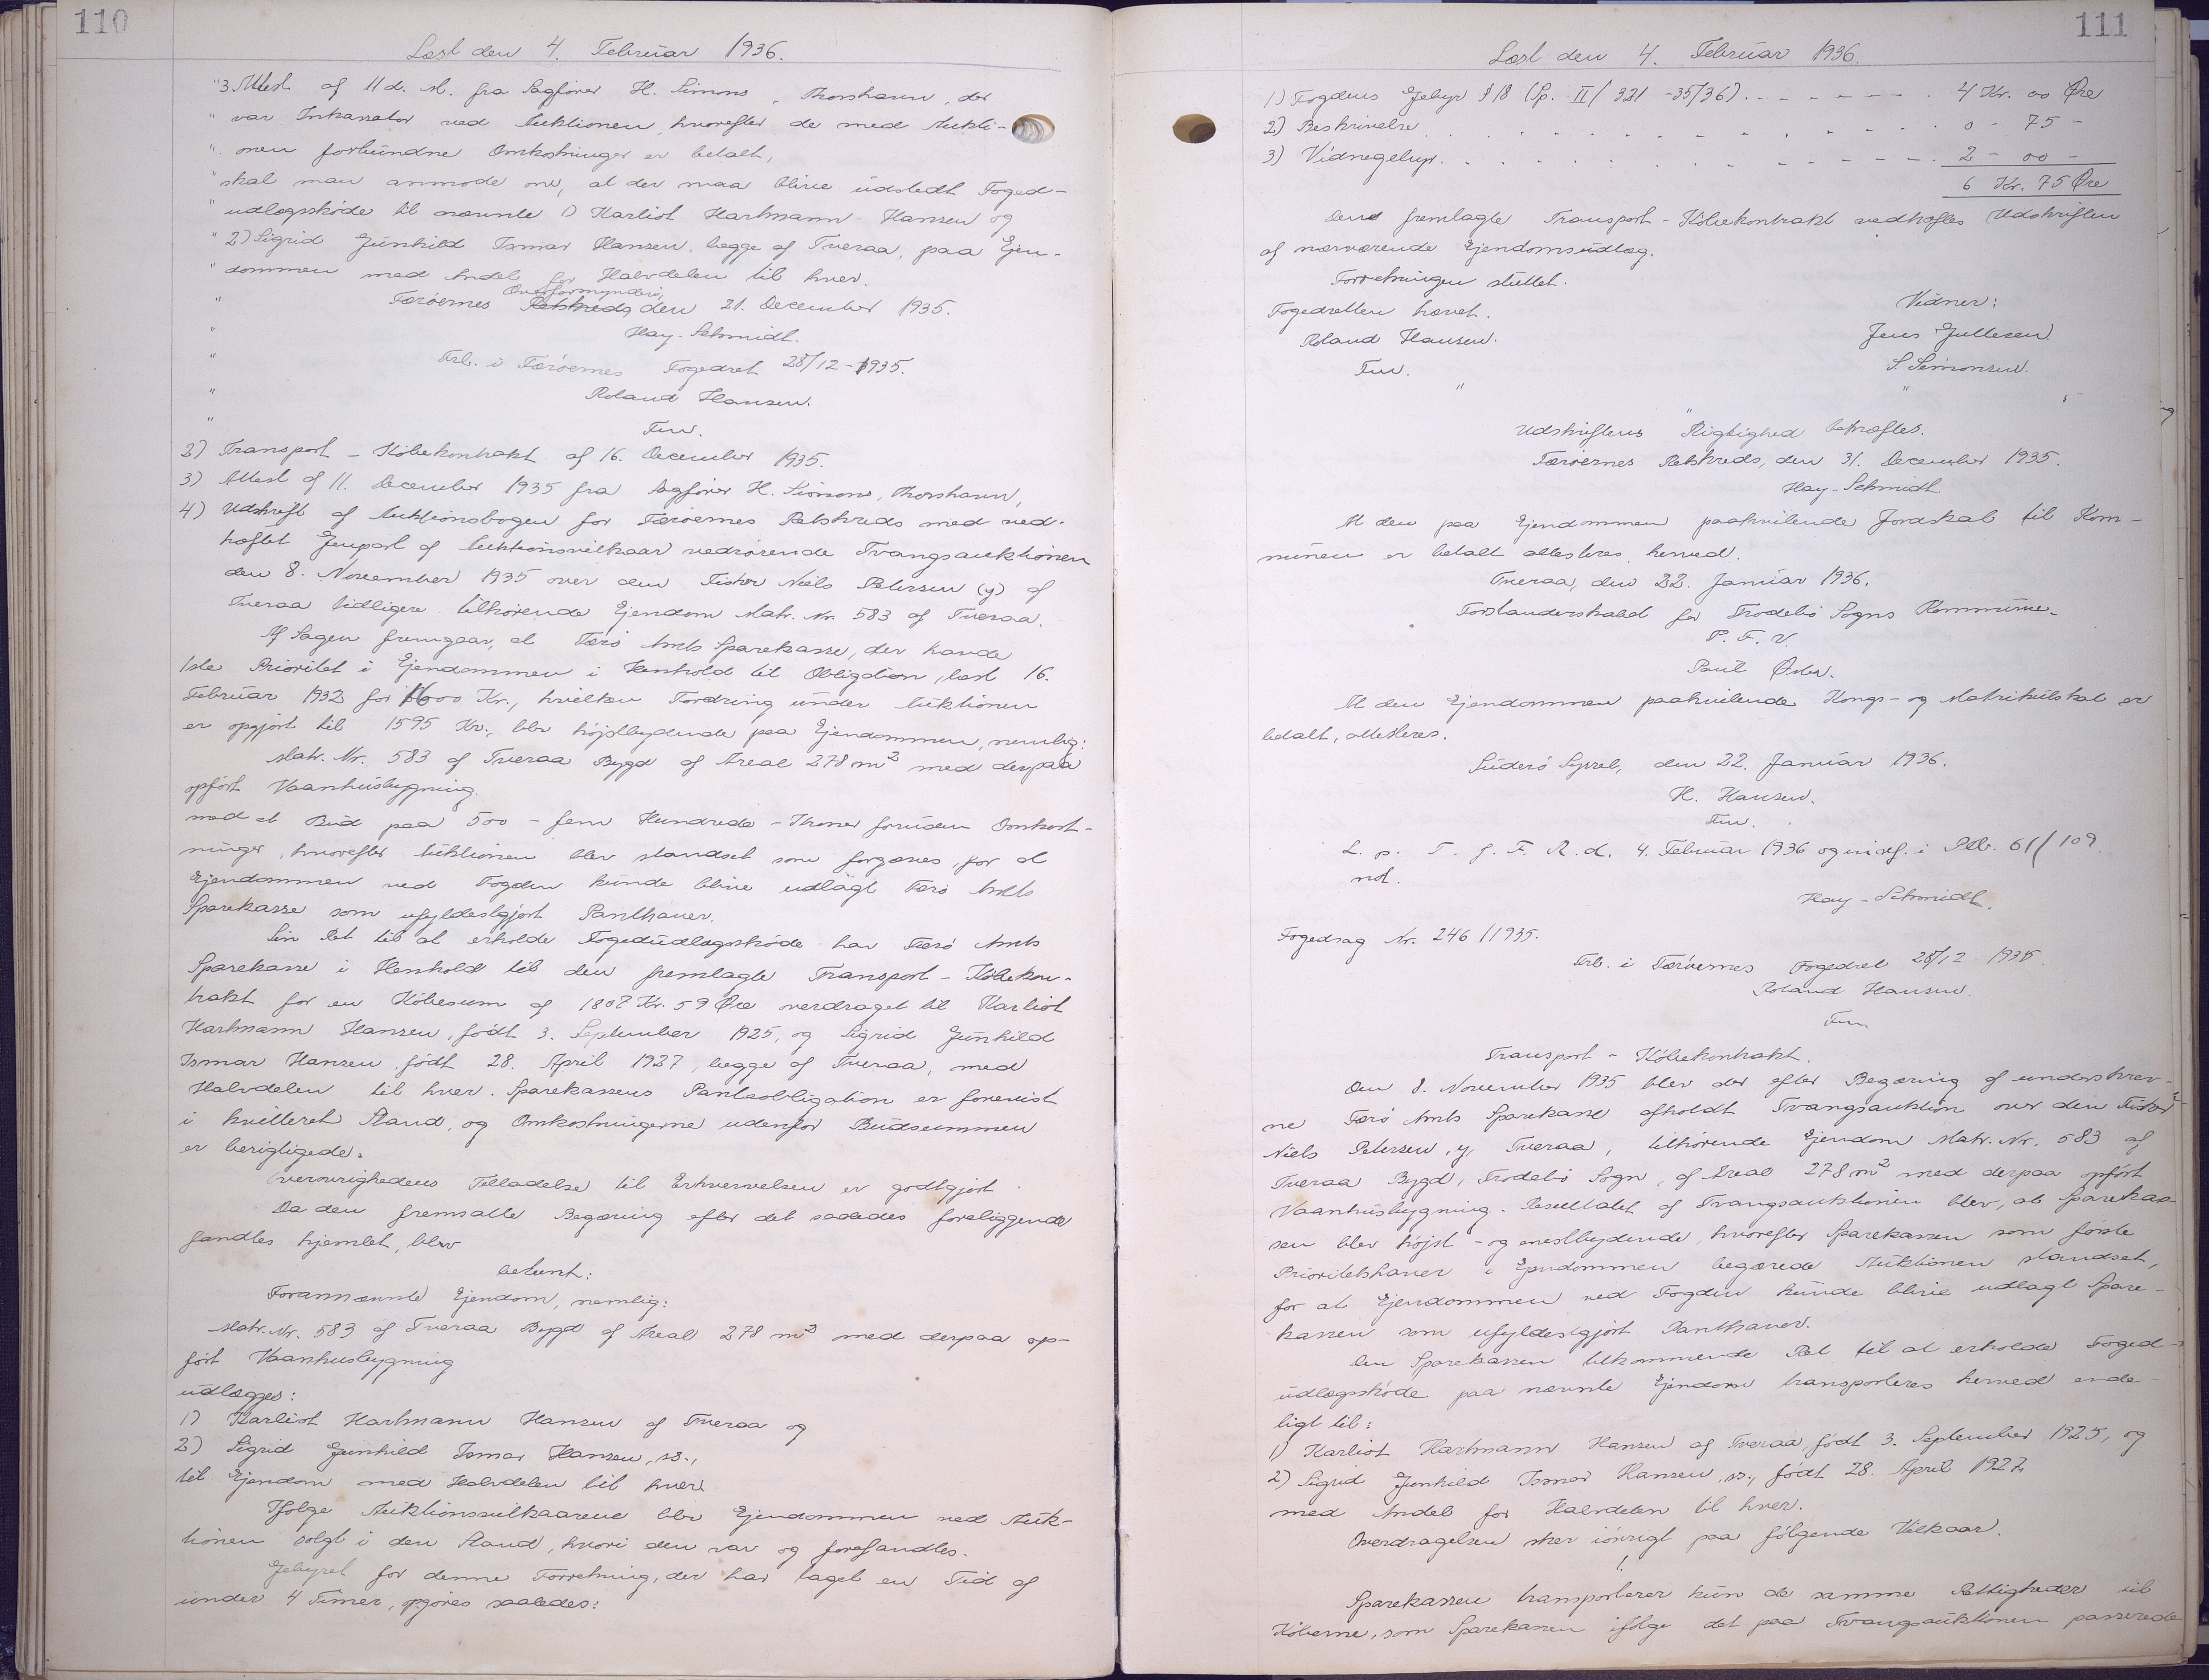 110
Læst den 4. Februar 1936.
" 3. Attest af 11 d. M. fra Sagfører H. Simons, Thorshavn, der
" var Inkassator ved Auktionen, hvorefter de med Aukti-
" onen forbundne Omkostninger er betalt,
" skal man anmode om, at der maa blive udstedt Foged-
" udlægsskøde til nævnte 1) Karliot Hartmann Hansen og
" 2) Sigrid Gunhild Ismar Hansen, begge af Tveraa, paa Ejen-
" dommen med Andel for Halvdelen til hver.
Overformynderi,
" Færøernes Retskreds, den 21. December 1935.
" Hay-Schmidt.
" Frb. i Færøernes Fogedret 28/12-1935.
" Roland Hansen.
" Fm.
2) Transport-Købekontrakt af 16. December 1935.
3) Attest af 11. December 1935 fra Sagfører H. Simons, Thorshavn,
4) Udskrift af Auktionsbogen for Færøernes Retskreds med ved-
hæftet Genpart af Auktionsvilkaar vedrørende Tvangsauktionen
den 8. November 1935 over den Fisker Niels Petersen (y) af
Tveraa tidligere tilhørende Ejendom Matr. Nr. 583 af Tveraa.
Af Sagen fremgaar, at Færø Amts Sparekasse, der havde
1ste Prioritet i Ejendommen i Henhold til Obligation, læst 16.
Februar 1932 for 1600 Kr., hvilken Fordring under Auktionen
er opgjort til 1595 Kr., blev højstbydende paa Ejendommen, nemlig:
Matr. Nr. 583 af Tveraa Bygd af Areal 278 m² med derpaa
opført Vaanhusbygning.
med et Bud paa 500 - fem Hundrede - Kroner foruden Omkost-
ninger, hvorefter Auktionen blev standset som forgæves, for at
Ejendommen ved Fogden kunde blive udlagt Færø Amts
Sparekasse som ufyldestgjort Panthaver.
Sin Ret til at erholde Fogedudlægsskøde har Færø Amts
Sparekasse i Henhold til den fremlagte Transport-Købekon-
trakt for en Købesum af 1807 Kr. 59 Øre overdraget til Karliot
Hartmann Hansen, født 3. September 1925, og Sigrid Gunhild
Ismar Hansen, født 28. April 1927, begge af Tveraa, med
Halvdelen til hver. Sparekassens Panteobligation er forevist
i kvitteret Stand, og Omkostningerne udenfor Budsummen
er berigtigede.
Overøvrighedens Tilladelse til Erhvervelsen er godtgjort.
Da den fremsatte Begæring efter det saaledes foreliggende
fandtes hjemlet, blev
bestemt:
Forannævnte Ejendom, nemlig:
Matr. Nr. 583 af Tveraa Bygd af Areal 278 m² med derpaa op-
ført Vaanhusbygning
udlægges:
1) Karliot Hartmann Hansen af Tveraa og
2) Sigrid Gunhild Ismar Hansen, ss.,
til Ejendom med Halvdelen til hver.
Ifølge Auktionsvilkaarene blev Ejendommen ved Auk-
tionen solgt i den Stand, hvori den var og forefandtes.
Gebyret for denne Forretning, der har taget en Tid af
under 4 Timer, opgøres saaledes:
111
Læst den 4. Februar 1936.
1) Fogdens Gebyr § 18 (Sp. II/ 321 -35/36) 4 Kr. 00 Øre
2) Beskrivelse 0 - 75 -
3) Vidnegebyr. 2 - 00 -
6 Kr. 75 Øre
Den fremlagte Transport-Købekontrakt vedhæftes Udskriften
af nærværende Ejendomsudlæg.
Forretningen sluttet.
Fogedretten hævet. Vidner:
Roland Hansen. Jens Gullesen.
Fm. S. Simonsen.
" " "
Udskriftens Rigtighed bekræftes.
Færøernes Retskreds, den 31. December 1935.
Hay-Schmidt
At den paa Ejendommen paahvilende Jordskat til Kom-
munen er betalt attesteres herved.
Tveraa, den 22. Januar 1936.
Forstanderskabet for Frodebø Sogns Kommune.
P. F. V.
Paul
At den Ejendommen paahvilende Kongs- og Matrikulskat er
betalt, attesteres.
Suderø Syssel, den 22. Januar 1936.
H. Hansen.
Fm.
L. p. T. f. F. R. d. 4. Februar 1936 og indf. i Ptb. 61/109.
not.
Hay-Schmidt.
Fogedsag Nr. 246/1935.
Frb. i Færøernes Fogedret 28/12 1935.
Roland Hansen.
Fm
Transport-Købekontrakt.
Den 8. November 1935 blev der efter Begæring af underskrev-
ne Færø Amts Sparekasse afholdt Tvangsauktion over den Fisker
Niels Petersen, y, Tveraa, tilhørende Ejendom Matr. Nr. 583 af
Tveraa Bygd, Frodebø Sogn, af Areal 278 m² med derpaa opført
Vaanhusbygning. Resultatet af Tvangsauktionen blev, at Sparekas-
sen blev højst- og enestbydende, hvorefter Sparekassen som første
Prioritetshaver i Ejendommen begærede Auktionen standset,
for at Ejendommen ved Fogden kunde blive udlagt Spare-
kassen som ufyldestgjort Panthaver.
Den Sparekassen tilkommende Ret til at erholde Foged-
udlægsskøde paa nævnte Ejendom transporteres herved ende-
ligt til:
1) Karliot Hartmann Hansen af Tveraa, født 3. September 1925, og
2) Sigrid Gunhild Ismar Hansen, ss., født 28. April 1927,
med Andel for Halvdelen til hver.
Overdragelsen sker iøvrigt paa følgende Vilkaar.
1.
Sparekassen transporterer kun de samme Rettigheder til
Køberne, som Sparekassen ifølge det paa Tvangsauktionen passerede